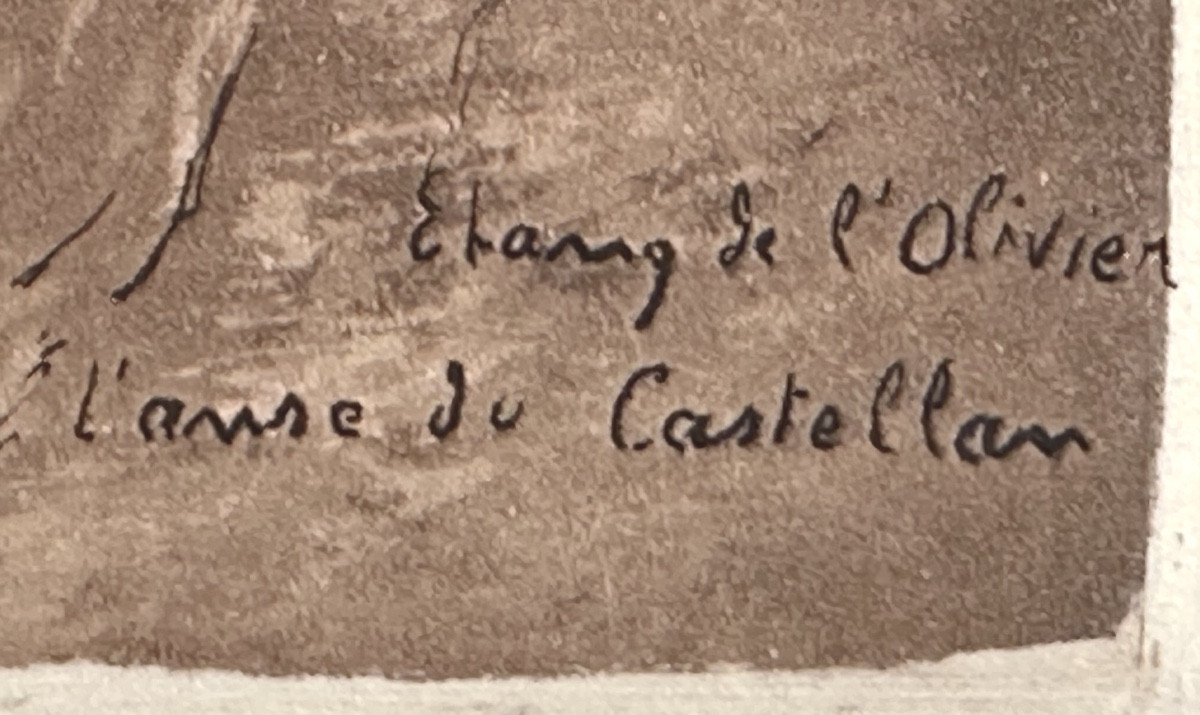 Etang de l'Olivier
l'anse du Castellan